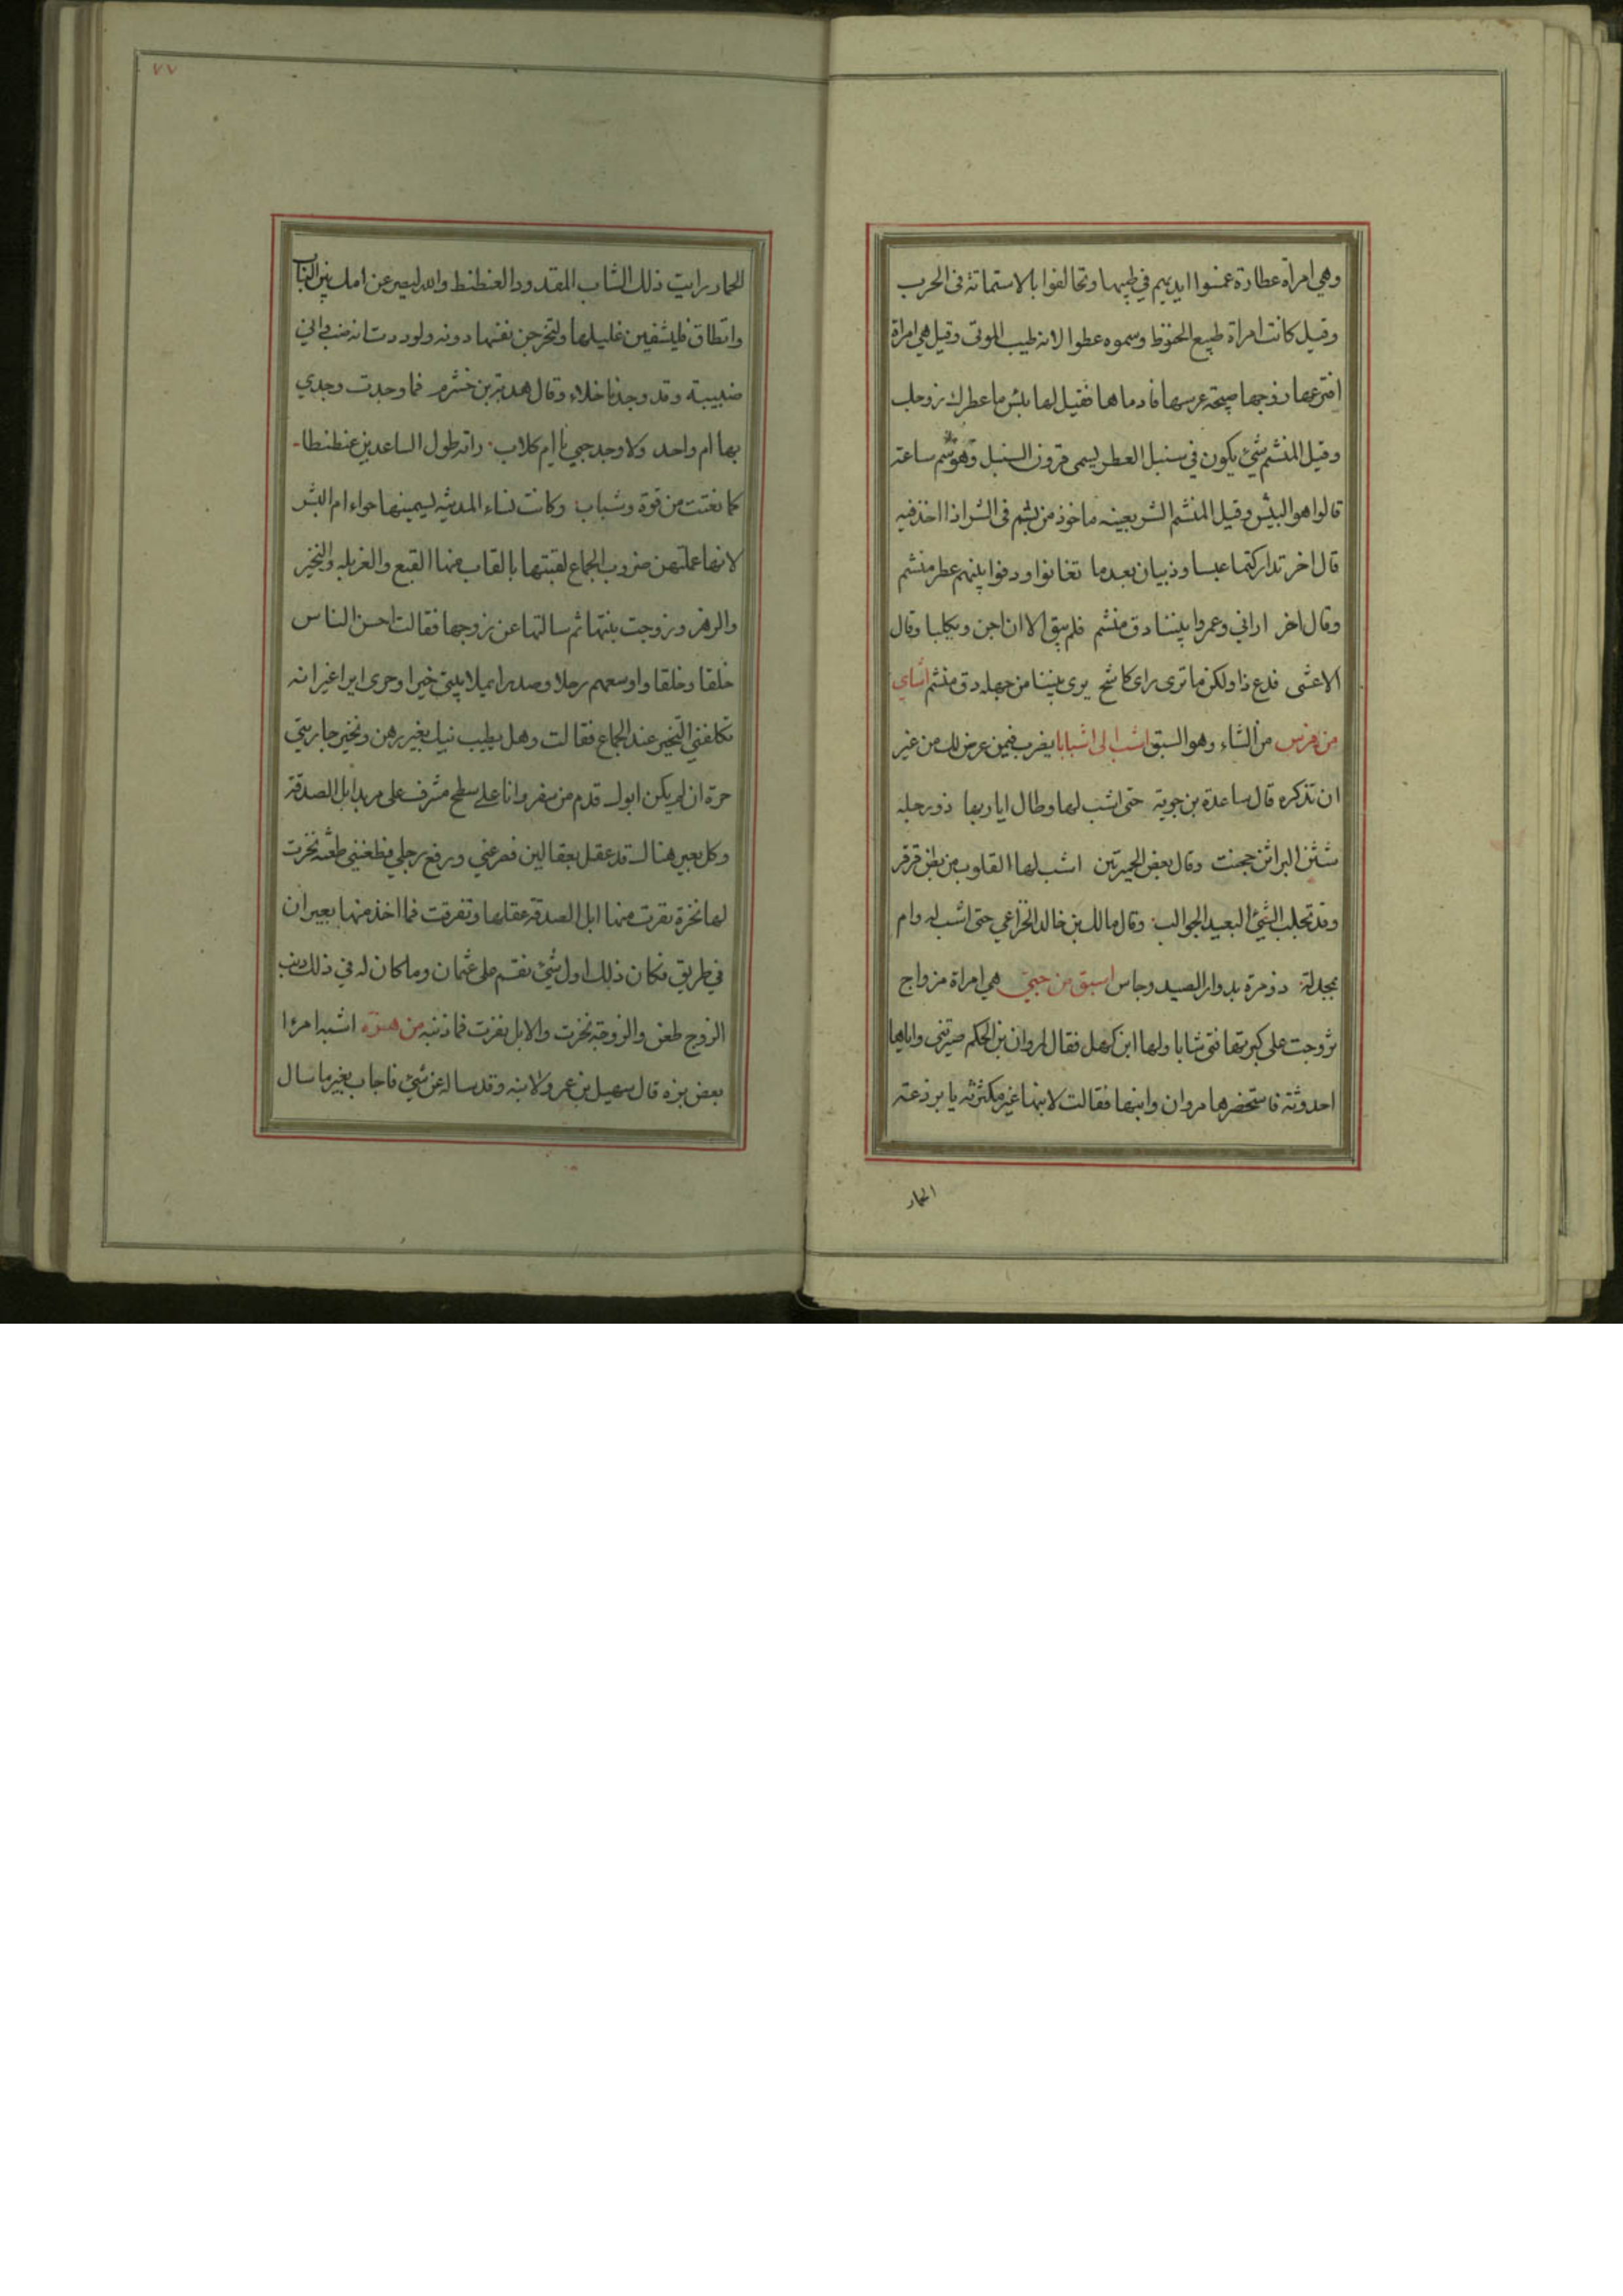 وهي امرأة عطارة غمسوا ايديهم في طيبها وتحالفوا بالاستماتة فى الحرب
وقيل كانت امراة تبيع الحنوط وسموه عطرا لانه طيب الموتى وقيل هي امراة
افترعها زوجها صبيحة عرسها فادماها فقيل لها بئس ما عطرك زوجك
وقيل المنشم شيئ يكون في سنبل العطر يسمى قرون السنبل وهو سم ساعة
قالوا هو البيش وقيل المنشم الشر بعينه ماخوذ من نشم فى الشر اذا اخذ فيه
قال اخر تداركتما عبسا وذبيان بعدما تفانوا ودقوا بينهم عطر منشم
وقال اخر اراني وعمروا بيننا دق منشم فلم يبق الا ان اجن ويكلبا وقال
الاعشى فدع ذا ولكن ما ترى راى كاشح يرى بيننا من جهله دق منشم اشاي
من فرس من الشاء وهو السبق اشب لى اشبابا يضرب فيمن عرض لك من غير
ان تذكره قال ساعدة بن جوية حتى اشب لها وطال ايابها ذو رجلة
شثن البراثن جحنب وقال بعض الحميرتين اشب لها القلوب من بطن قرقر
وقد تجلب الشيئ البعيد الجوالب وقال مالك بن خالد الخزاعي حتى اشب له رام
بمجدلة ذو مرة بدوار الصيد وجاس اسبق من حبي هي امراة مزواج
تزوجت على كبر سنها فتى شابا ولها ابن كهل فقال لمروان بن الحكم صيرتني واياها
احدوثة فاستحضرها مروان وابنها فقالت لابنها غير مكترثة يا برذعة
الحمار
٧٧
الحمار رايت ذلك الشاب المقدود العنطنط والله ليصرعن امك بين الباب
والطاق فليشفين غليلها ولتخرجن نفسها دونه ولوددت انه ضب واني
ضبيبة وقد وجدنا خلاء وقال هدبة بن خشرم فما وجدت وجدي
بها ام واحد ولا وجد حبي بابن ام كلاب راته طويل الساعدين عنطنطا
كما نعتت من قوة وشباب وكانت نساء المدينة يسمينها حواء ام البشر
لانها علمتهن ضروب الجماع لقبتها بالقاب منها القبع والغربلة والنخير
والرهز وزوجت بنتها ثم سالتها عن زوجها فقالت احسن الناس
خلقا وخلقا واوسعهم رحلا وصدرا يملا بيتي خيرا وحرى ايرا غير انه
تكلفني النخير عند الجماع فقالت وهل يطيب نيك بغير رهز ونخير جاريتي
حرة ان لم يكن ابوك قدم من سفر وانا على سطح مشرف على مربد ابل الصدقة
وكل بعير هناك قد عقل بعقالين فصرعني ورفع رجلي فطعنني طعنة نخرت
لها نخرة نفرت منها ابل الصدقة عقلها وتفرقت فما اخذ منها بعيران
في طريق فكان ذلك اول شيئ نقم على عثمان وما كان له في ذلك ذنب
الزوج طعن والزوجة نخرت والابل نفرت فما ذنبه اشبه امرءا
بعض بزه قال سهيل بن عمرو لابنه وقد ساله عن شيئ فاجاب بغير ما سال